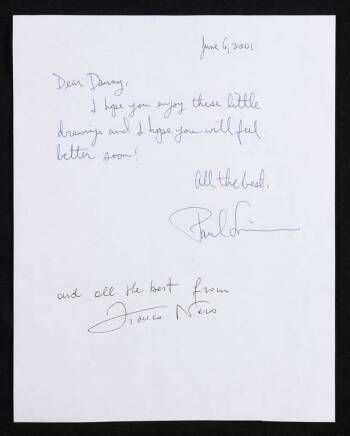 June 6, 2001
Dear Danny,
I hope you enjoy these little
drawings and I hope you will feel
better soon!
All the best,
Paul
and all the best from
Franco Nero